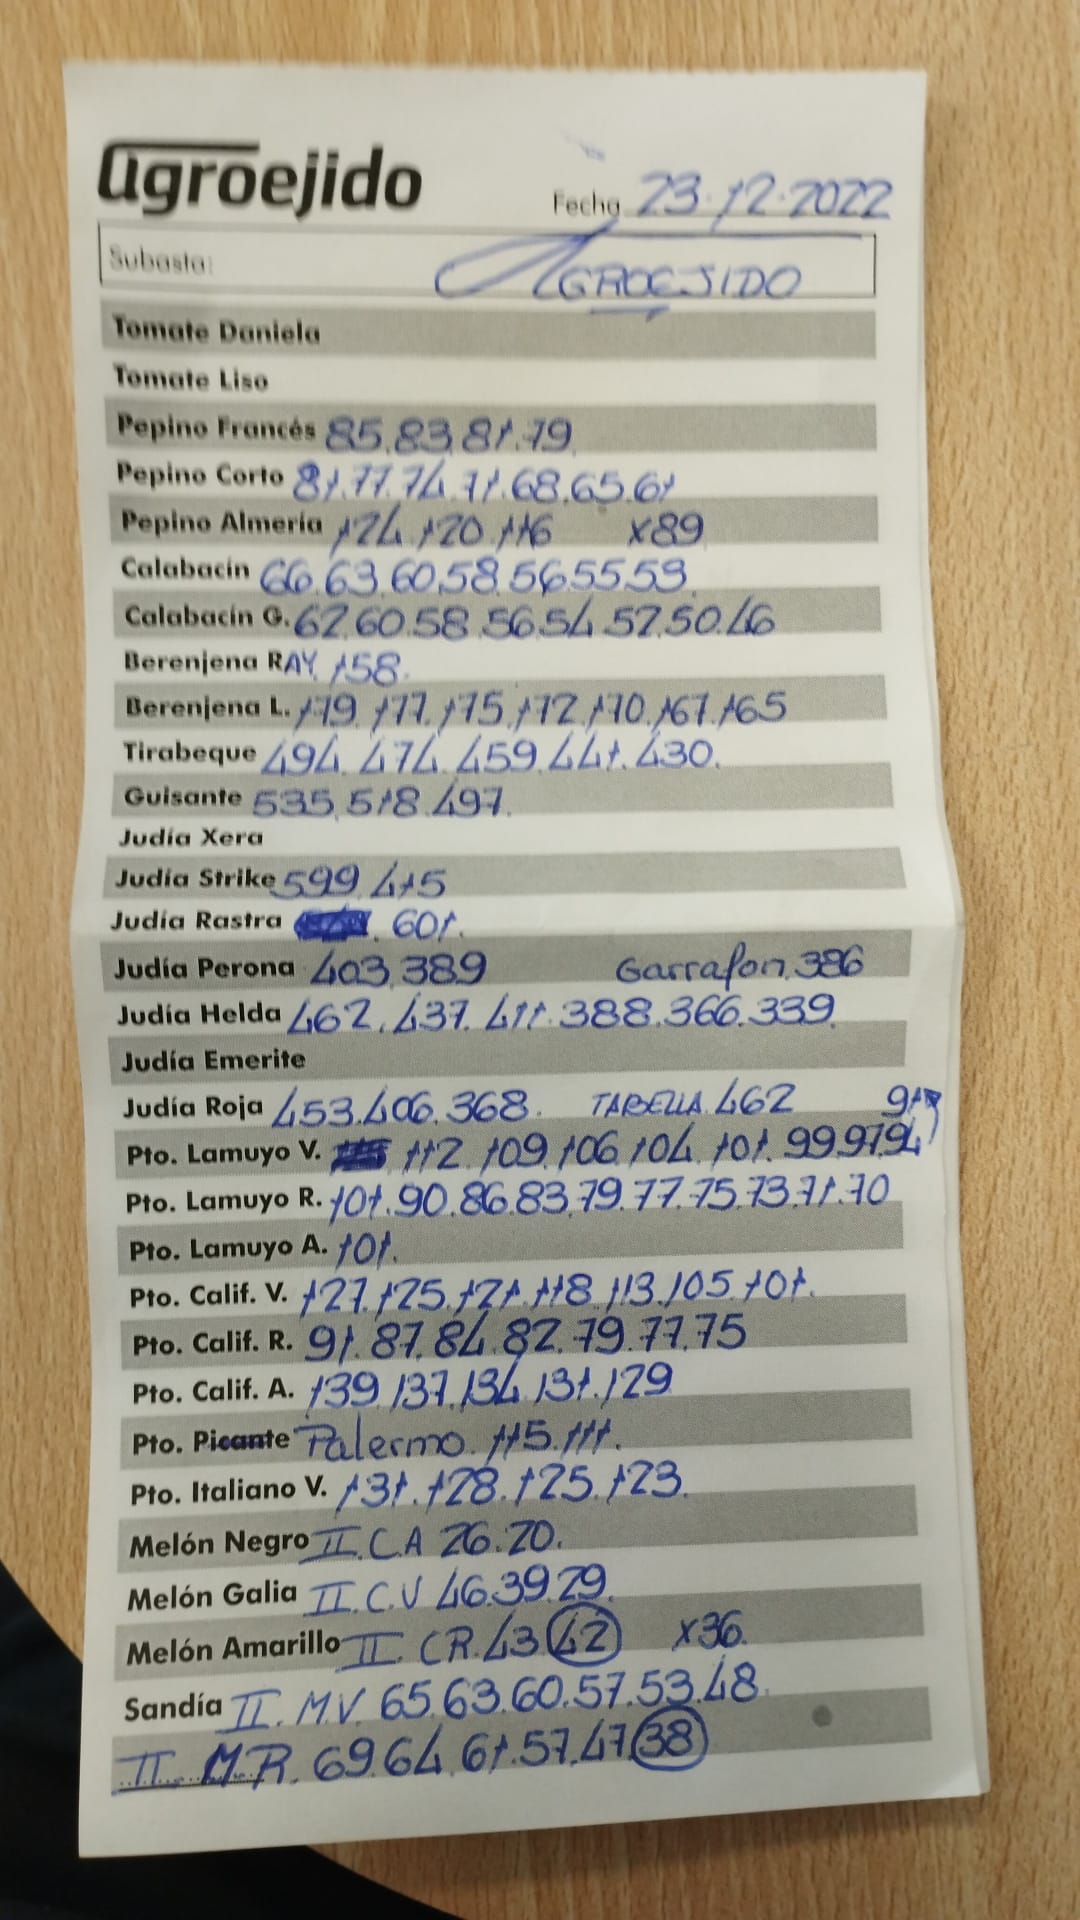 agroejido
Fecha 23.12.2022
Subasta: AGROEJIDO
Tomate Daniela
Tomate Liso
Pepino Francés 85.83.81.79
Pepino Corto 81.77.74.71.68.65.61
Pepino Almería 124.120.116 x89
Calabacín 66.63.60.58.56.55.53.
Calabacín G. 62.60.58.56.54.52.50.46
Berenjena RAY. 158.
Berenjena L. 179.177.175.172.170.167.165
Tirabeque 494.474.459.441.430.
Guisante 535.518.497.
Judía Xera
Judía Strike 599.415
Judía Rastra . 601.
Judía Perona 403.389 Garrafon.386
Judía Helda 462.437.411.388.366.339.
Judía Emerite
Judía Roja 453.406.368. TABELLA.462
Pto. Lamuyo V. 112.109.106.104.101.99.97.94
Pto. Lamuyo R. 101.90.86.83.79.77.75.73.71.70
Pto. Lamuyo A. 101.
Pto. Calif. V. 127.125.121.118.113.105.101.
Pto. Calif. R. 91.87.84.82.79.77.75
Pto. Calif. A. 139.137.134.131.129
Pto. Picante Palermo. 115.111.
Pto. Italiano V. 131.128.125.123.
Melón Negro II.CA 26.20.
Melón Galia II.C.V 46.39.29.
Melón Amarillo II. CR.43.42 x36.
Sandía II. M.V. 65.63.60.57.53.48.
II. M.R. 69.64.61.57.47.38